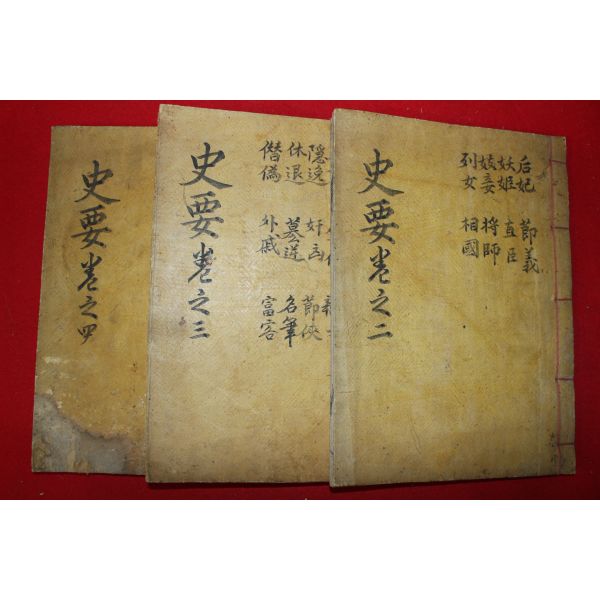 史要卷之二
后妃 節義
妖姬 直臣
妓妾 将師
列女 相國
史要卷之三
隱逸 奸凶 節俠
休退 墓道 名筆
僭偽 外戚 富客
史要卷之四